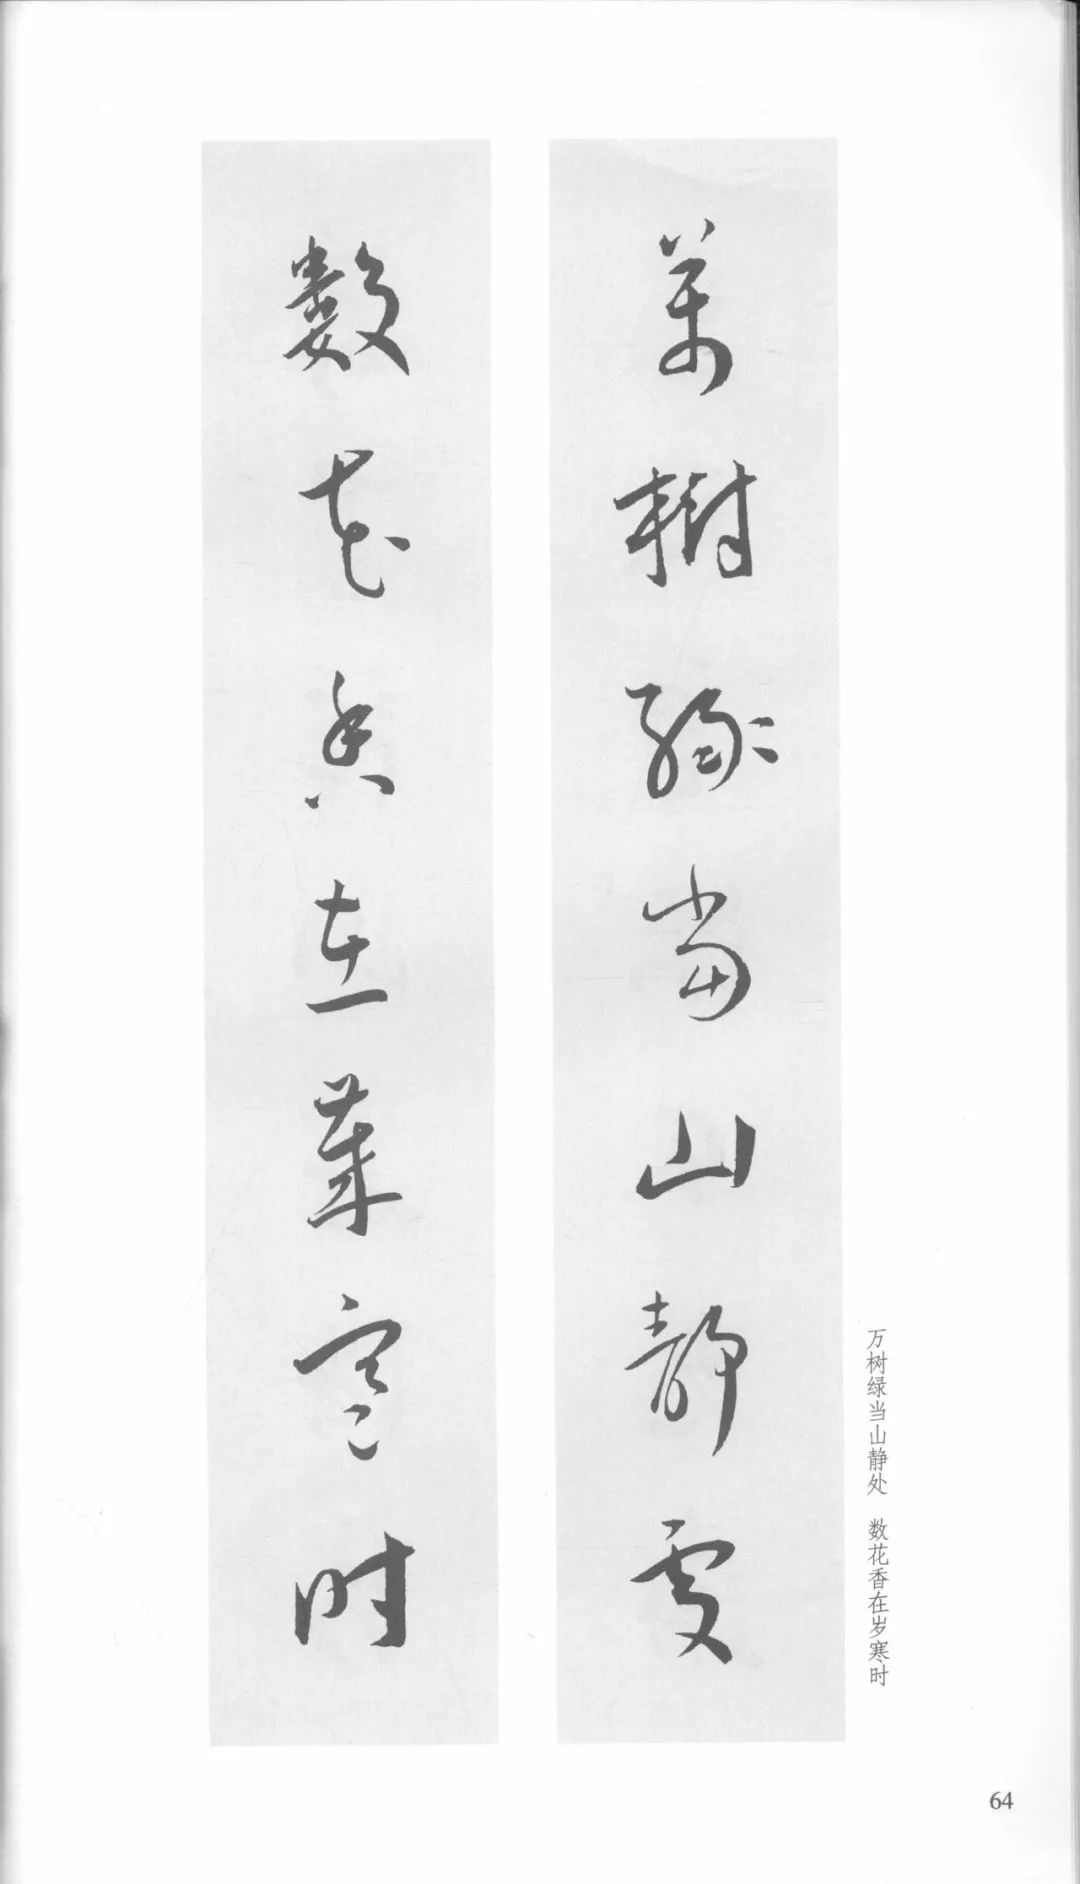 萬樹緑当山静處
数花香在歲寒时
万树绿当山静处 数花香在岁寒时
64